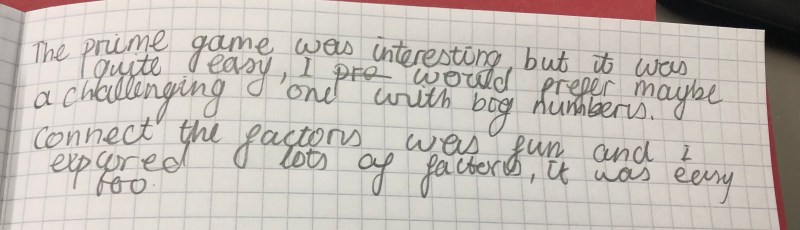 The prime game was interesting, but it was
quite easy, I pre would preper maybe
a challenging one with big numbers.
Connect the factors was fun and I
expored lots of factors, it was easy
too.